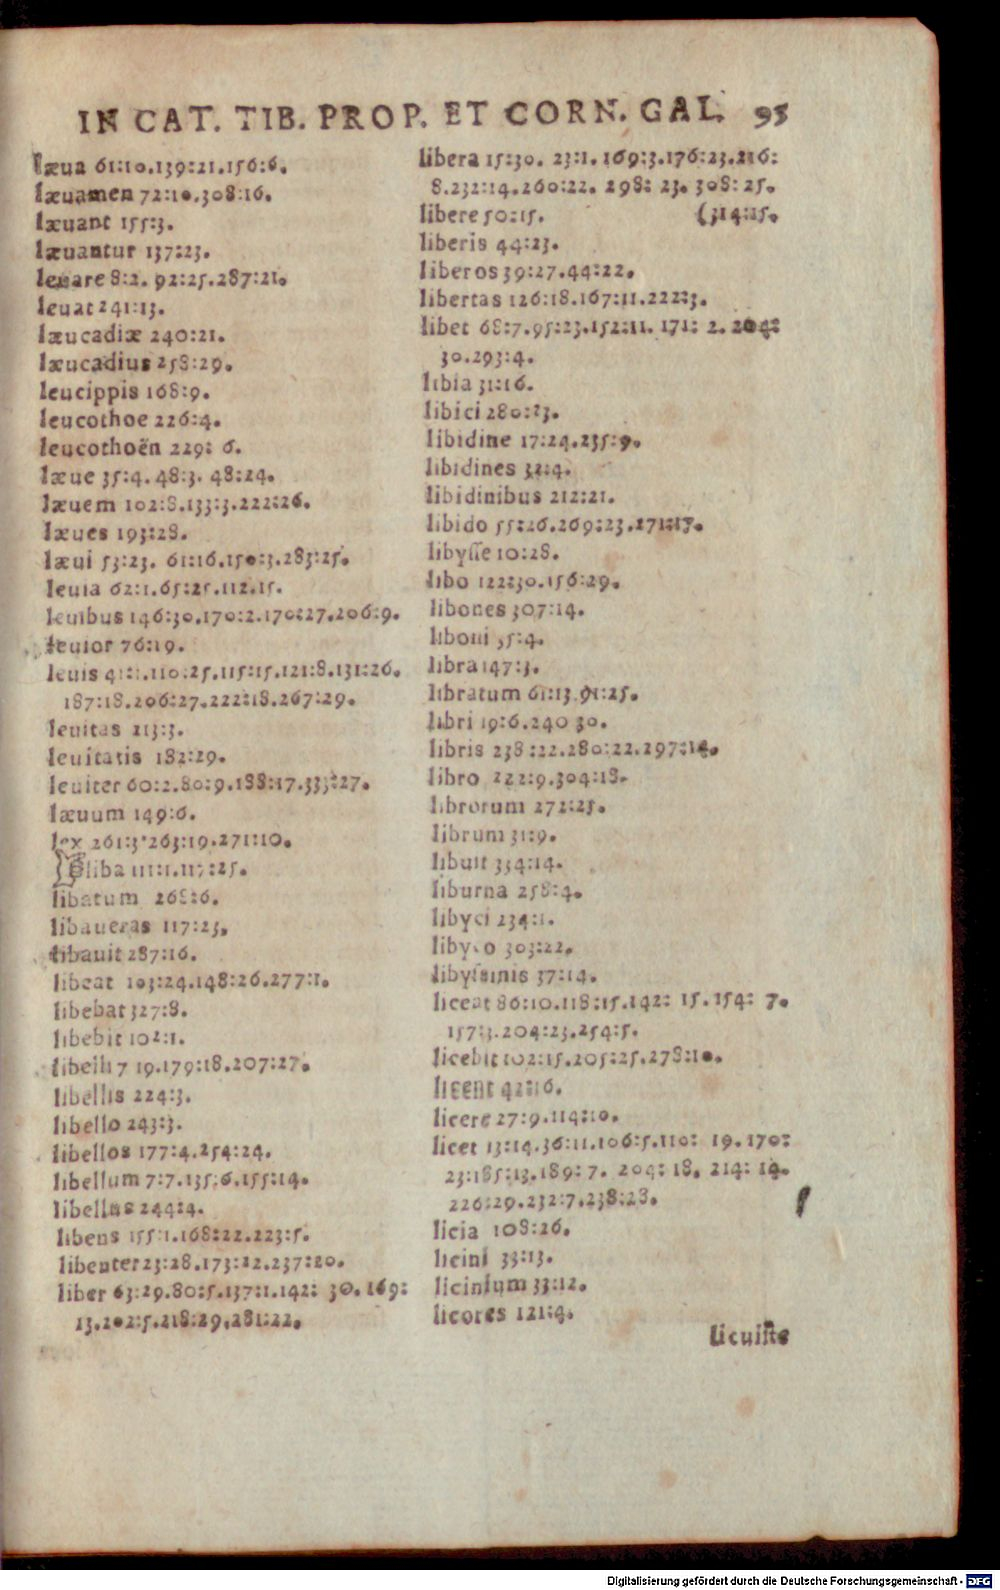 IN CAT. TIB. PROP. ET CORN. GAL. 95
læua 61:10.139:21.156:6.
læuamen 72:10.308:16.
læuant 155:3.
læuantur 137:23.
leuare 8:2. 92:25.287:21.
leuat 241:13.
læucadiæ 240:21.
læucadius 258:29.
leucippis 168:9.
leucothoe 226:4.
leucothoën 229: 6.
læue 35:4. 48:3. 48:24.
læuem 102:8.133:3.222:26.
læues 193:28.
læui 53:23. 61:16.150:3.283:25.
leuia 62:1.65:25.112.15.
leuibus 146:30.170:2.170:27.206:9.
leuior 76:19.
leuis 41:1.110:25.115:15.121:8.131:26.
187:18.206:27.222:18.267:29.
leuitas 213:3.
leuitatis 182:29.
leuiter 60:2.80:9.188:17.333:27.
læuum 149:6.
lex 261:3.263:19.271:10.
liba 111:1.117:25.
libatum 268:6.
libaueras 117:23.
libauit 287:16.
libeat 103:24.148:26.277:1.
libebat 327:8.
libebit 102:1.
libelli 7 19.179:18.207:27.
libellis 224:3.
libello 243:3.
libellos 177:4.254:24.
libellum 7:7.135:6.155:14.
libellus 244:4.
libens 155:1.168:22.223:5.
libenter 23:28.173:12.237:20.
liber 63:29.80:5.137:1.142: 30. 169:
13.202:5.218:29.281:22.
libera 15:30. 23:1. 169:3.176:23.216:
8.232:14.260:22. 298: 23. 308: 25.
libere 50:15. (314:15.
liberis 44:23.
liberos 39:27.44:22.
libertas 126:18.167:11.222:3.
libet 68:7.95:23.152:11. 171: 2. 204:
30.293:4.
libia 31:16.
libici 280:23.
libidine 17:24.235:9.
libidines 32:4.
libidinibus 212:21.
libido 55:26.269:23.271:17.
libysse 10:28.
libo 122:30.156:29.
libones 307:14.
liboni 35:4.
libra 147:3.
libratum 61:13.91:25.
libri 19:6.240 30.
libris 238:22.280:22.297:14.
libro 222:9.304:18.
librorum 272:25.
librum 31:9.
libuit 334:14.
liburna 258:4.
libyci 234:1.
libyco 303:22.
libyssinis 37:14.
liceat 86:10.118:15.142: 15. 154: 7.
157:3.204:23.254:5.
licebit 102:15.205:25.278:10.
licent 42:16.
licere 27:9.114:10.
licet 13:14.36:11.106:5.110: 19. 170:
23:185:13.189: 7. 204: 18. 214: 14.
226:29.232:7.238:28.
licia 108:26.
licini 33:13.
licinium 33:12.
licores 121:4.
licuiste
Digitalisierung gefördert durch die Deutsche Forschungsgemeinschaft - DFG